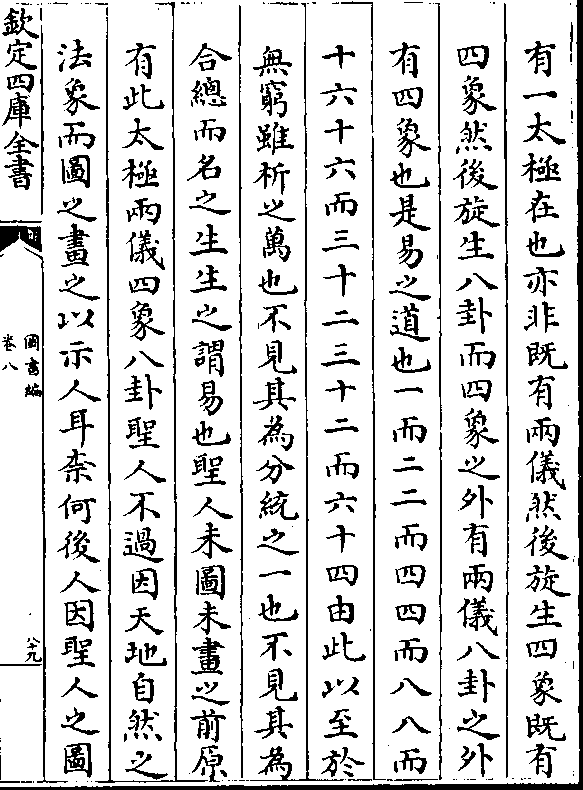 有一太極在也亦非既有兩儀然後旋生四象既有
四象然後旋生八卦而四象之外有兩儀八卦之外
有四象也是易之道也一而二二而四四而八八而
十六十六而三十二三十二而六十四由此以至於
無窮雖析之萬也不見其為分統之一也不見其為
合總而名之生生之謂易也聖人未圖未畫之前原
有此太極兩儀四象八卦聖人不過因天地自然之
法象而圖之畫之以示人耳柰何後人因聖人之圖
欽定四庫全書
圖書編
卷八
八十九